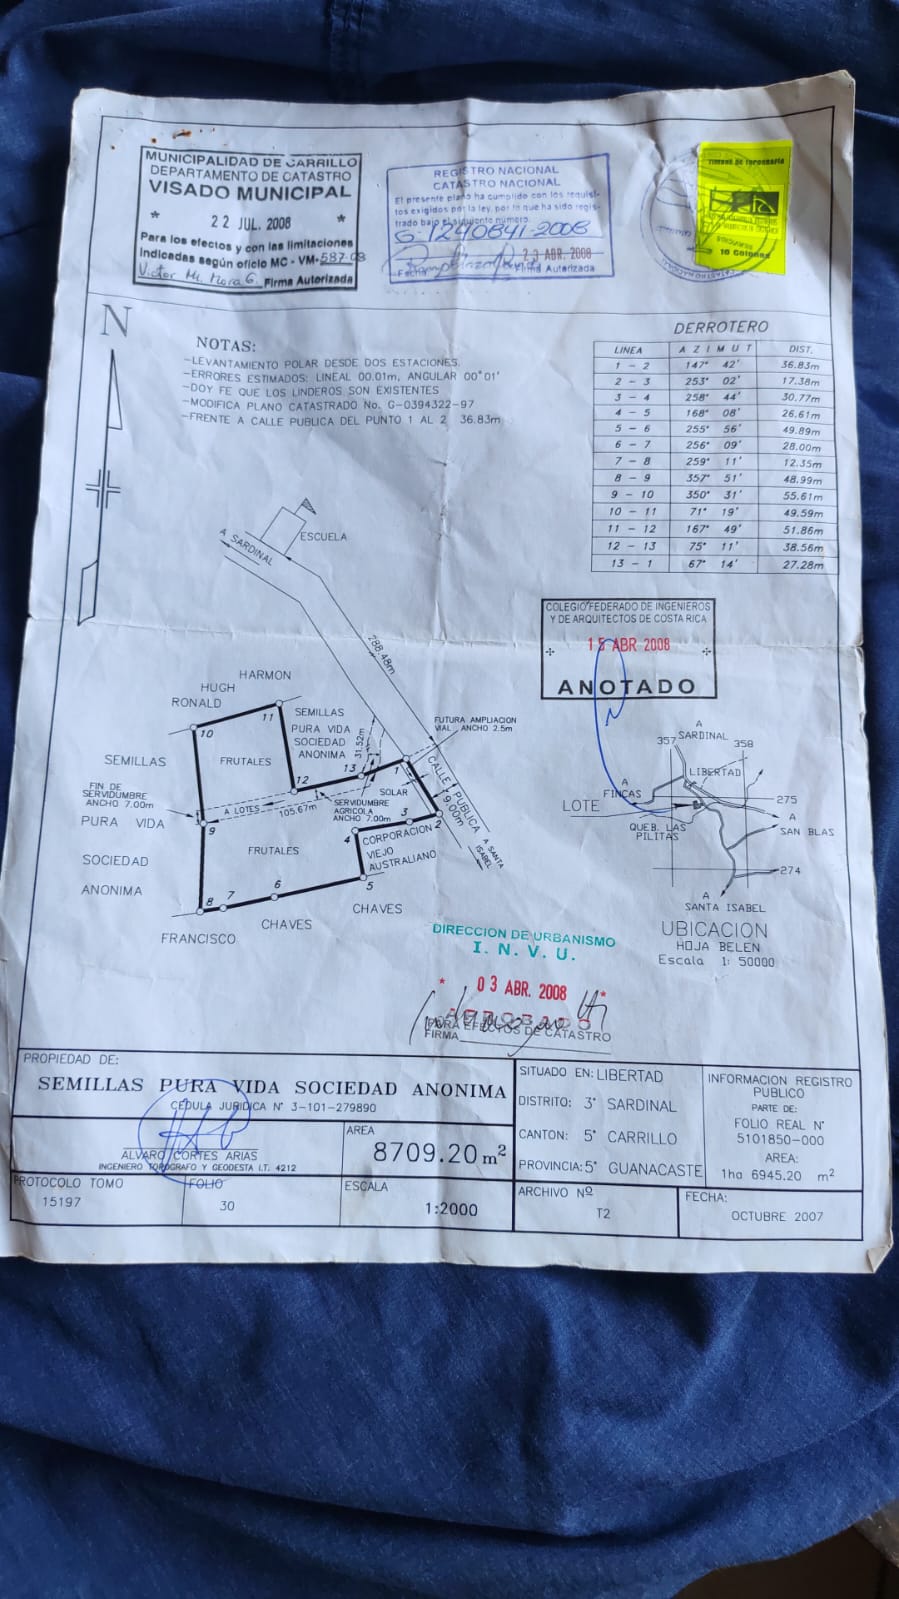 MUNICIPALIDAD DE CARRILLO
DEPARTAMENTO DE CATASTRO
VISADO MUNICIPAL
* 22 JUL. 2008 *
Para los efectos y con las limitaciones
indicadas según oficio MC - VM-587-08
Victor Ml. Mora G. Firma Autorizada
REGISTRO NACIONAL
CATASTRO NACIONAL
El presente plano ha cumplido con los requisi-
tos exigidos por la ley, por lo que ha sido regis-
trado bajo el siguiente número:
G-1240841-2008
23 ABR. 2008
Fecha Firma Autorizada
TIMBRE DE TOPOGRAFIA
10 Colones
N
NOTAS:
-LEVANTAMIENTO POLAR DESDE DOS ESTACIONES.
-ERRORES ESTIMADOS: LINEAL 00.01m, ANGULAR 00°01'
-DOY FE QUE LOS LINDEROS SON EXISTENTES
-MODIFICA PLANO CATASTRADO No. G-0394322-97
-FRENTE A CALLE PUBLICA DEL PUNTO 1 AL 2 36.83m
DERROTERO
LINEA AZIMUT DIST.
1 - 2 147° 42' 36.83m
2 - 3 253° 02' 17.38m
3 - 4 258° 44' 30.77m
4 - 5 168° 08' 26.61m
5 - 6 255° 56' 49.89m
6 - 7 256° 09' 28.00m
7 - 8 259° 11' 12.35m
8 - 9 357° 51' 48.99m
9 - 10 350° 31' 55.61m
10 - 11 71° 19' 49.59m
11 - 12 167° 49' 51.86m
12 - 13 75° 11' 38.56m
13 - 1 67° 14' 27.28m
ESCUELA
A SARDINAL
288.48m
COLEGIO FEDERADO DE INGENIEROS
Y DE ARQUITECTOS DE COSTA RICA
15 ABR 2008
ANOTADO
HARMON
HUGH
RONALD
11
10
SEMILLAS
PURA VIDA
SOCIEDAD
ANONIMA
31.52m
FUTURA AMPLIACION
VIAL, ANCHO 2.5m
SEMILLAS
FRUTALES
13
1
12
SOLAR
CALLE PUBLICA
9.00m
FIN DE
SERVIDUMBRE
ANCHO 7.00m
A LOTES
105.67m
SERVIDUMBRE
AGRICOLA
ANCHO 7.00m
PURA VIDA
9
4
3
2
CORPORACION
VIEJO
AUSTRALIANO
A SANTA
ISABEL
SOCIEDAD
FRUTALES
ANONIMA
8
7
6
5
CHAVES
CHAVES
FRANCISCO
A
SARDINAL
357
358
LIBERTAD
A
FINCAS
LOTE
275
A
SAN BLAS
QUEB. LAS
PILITAS
274
A
SANTA ISABEL
UBICACION
HOJA BELEN
Escala 1: 50000
DIRECCION DE URBANISMO
I. N. V. U.
* 03 ABR. 2008 *
PARA EFECTOS DE CATASTRO
FIRMA
PROPIEDAD DE:
SEMILLAS PURA VIDA SOCIEDAD ANONIMA
CEDULA JURIDICA N° 3-101-279890
ALVARO CORTES ARIAS
INGENIERO TOPOGRAFO Y GEODESTA I.T. 4212
AREA
8709.20 m²
PROTOCOLO TOMO
15197
FOLIO
30
ESCALA
1:2000
SITUADO EN: LIBERTAD
DISTRITO: 3° SARDINAL
CANTON: 5° CARRILLO
PROVINCIA: 5° GUANACASTE
INFORMACION REGISTRO
PUBLICO
PARTE DE:
FOLIO REAL N°
5101850-000
AREA:
1ha 6945.20 m²
ARCHIVO Nº
T2
FECHA:
OCTUBRE 2007